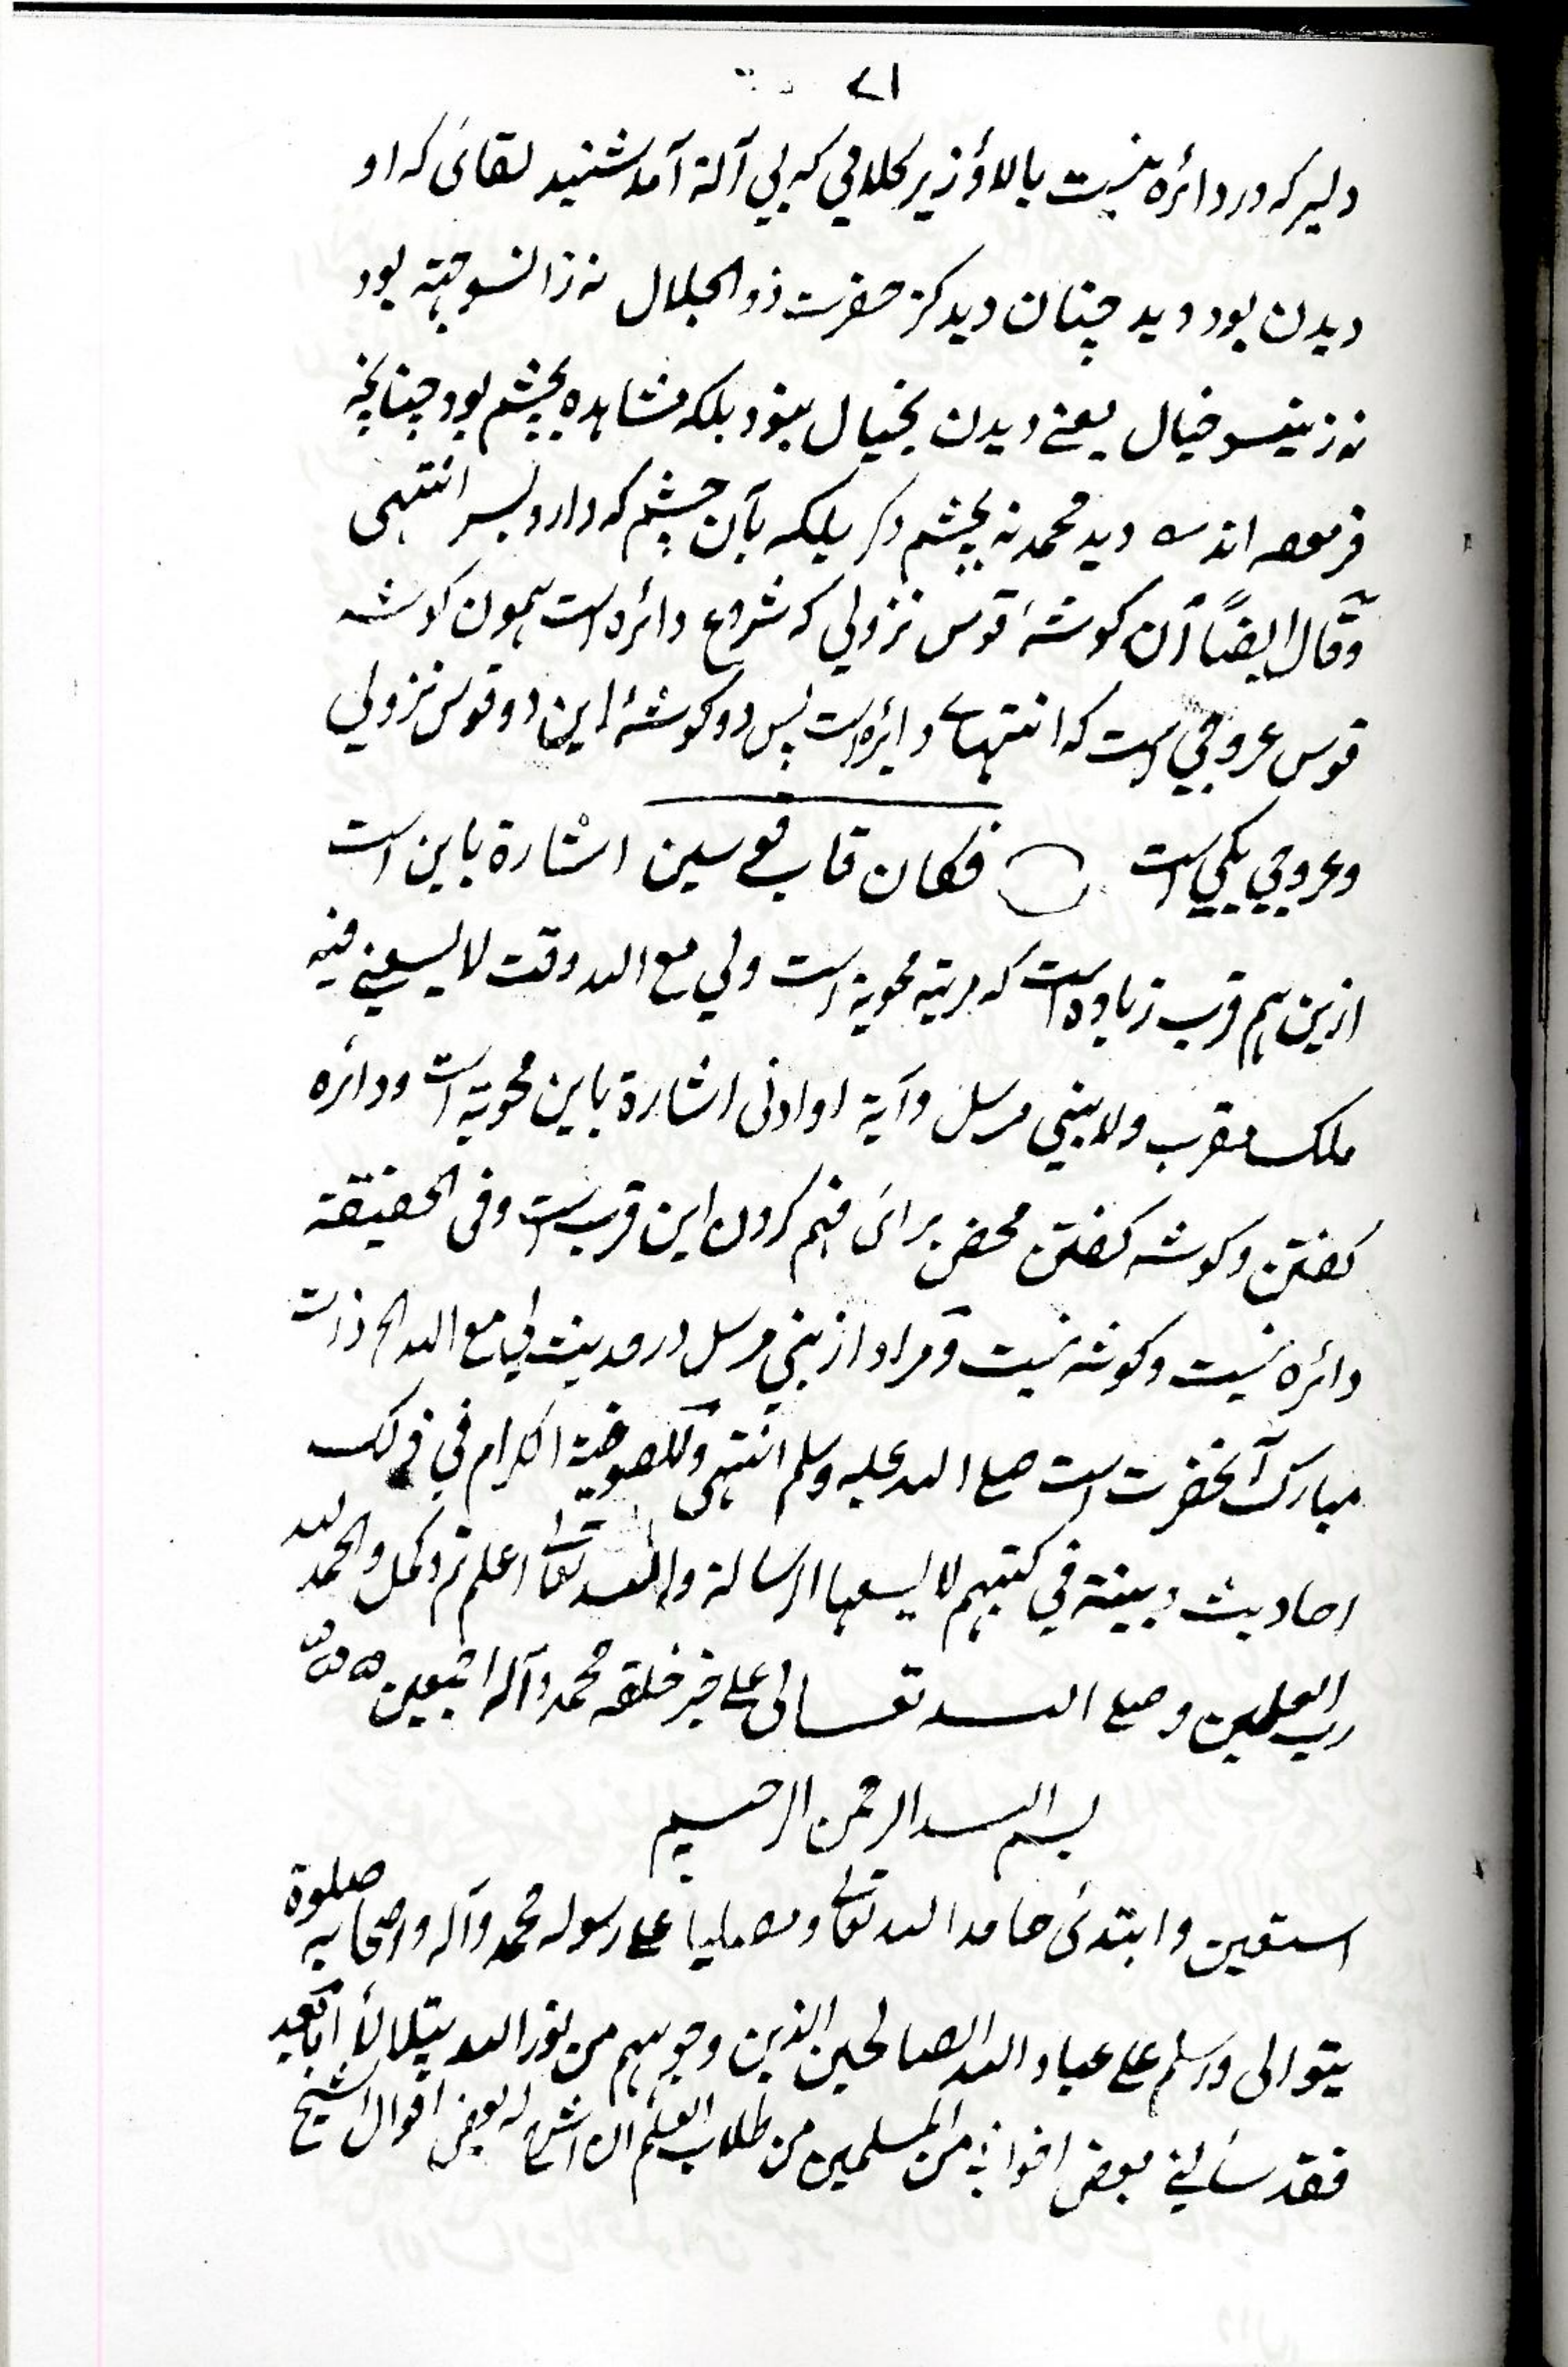 ۷۱
دلیر که در دائره نیست بالا و زیر کلامي که بي آلة آمد شنید لقائ که او
دیدن بود دید چنان دید کز حضرت ذو الجلال نه زانسو جهته بود
نه زینسو خیال یعنے دیدن بخیال نبود بلکه مشاهده بچشم بود چنانچه
فرموده اند دید محمد نه بچشم دکر بلکه بآن چشم که دارد بسر انتهى
وقال ایضاً أن کوشهٔ قوس نزولي که شروع دائره است همون کوشه
قوس عروجي است که انتهاے دائره است پس دو کوشهٔ این دو قوس نزولي
وعروجي یکي است فکان قاب قوسین اشارة باین است
ازین هم قرب زیاده است که مرتبه محویة است ولي مع الله وقت لا یسعنے فیه
ملک مقرب ولا نبي مرسل وآیة او ادنی اشارة باین محویة است ودائره
کفتن وکوشه کفتن محض برائ فهم کردن این قرب است وفی الحقیقة
دائره نیست وکوشه نیست ومراد از نبي مرسل در حدیث لي مع الله الخ ذات
مبارک آنحضرت است صلے الله علیه وسلم انتهى وللصوفیة الکرام في ذلک
احادیث مبینة في کتبهم لا یسعها الرسالة والله تعالی اعلم تم وکمل والحمد لله
رب العلمین وصلے الله تعالی علے خیر خلقه محمد وآله اجمعین
بسم الله الرحمن الرحیم
استعین وابتدئ حامدا لله تعالی ومصلیا علے رسوله محمد وآله واصحابه صلوة
یتوالی وسلم علے عباد الله الصالحین الذین وجوههم من نور الله یتلالأ اما بعد
فقد سألني بعض اخواني من المسلمین من طلاب العلم ان اشرح له بعض اقوال الشیخ